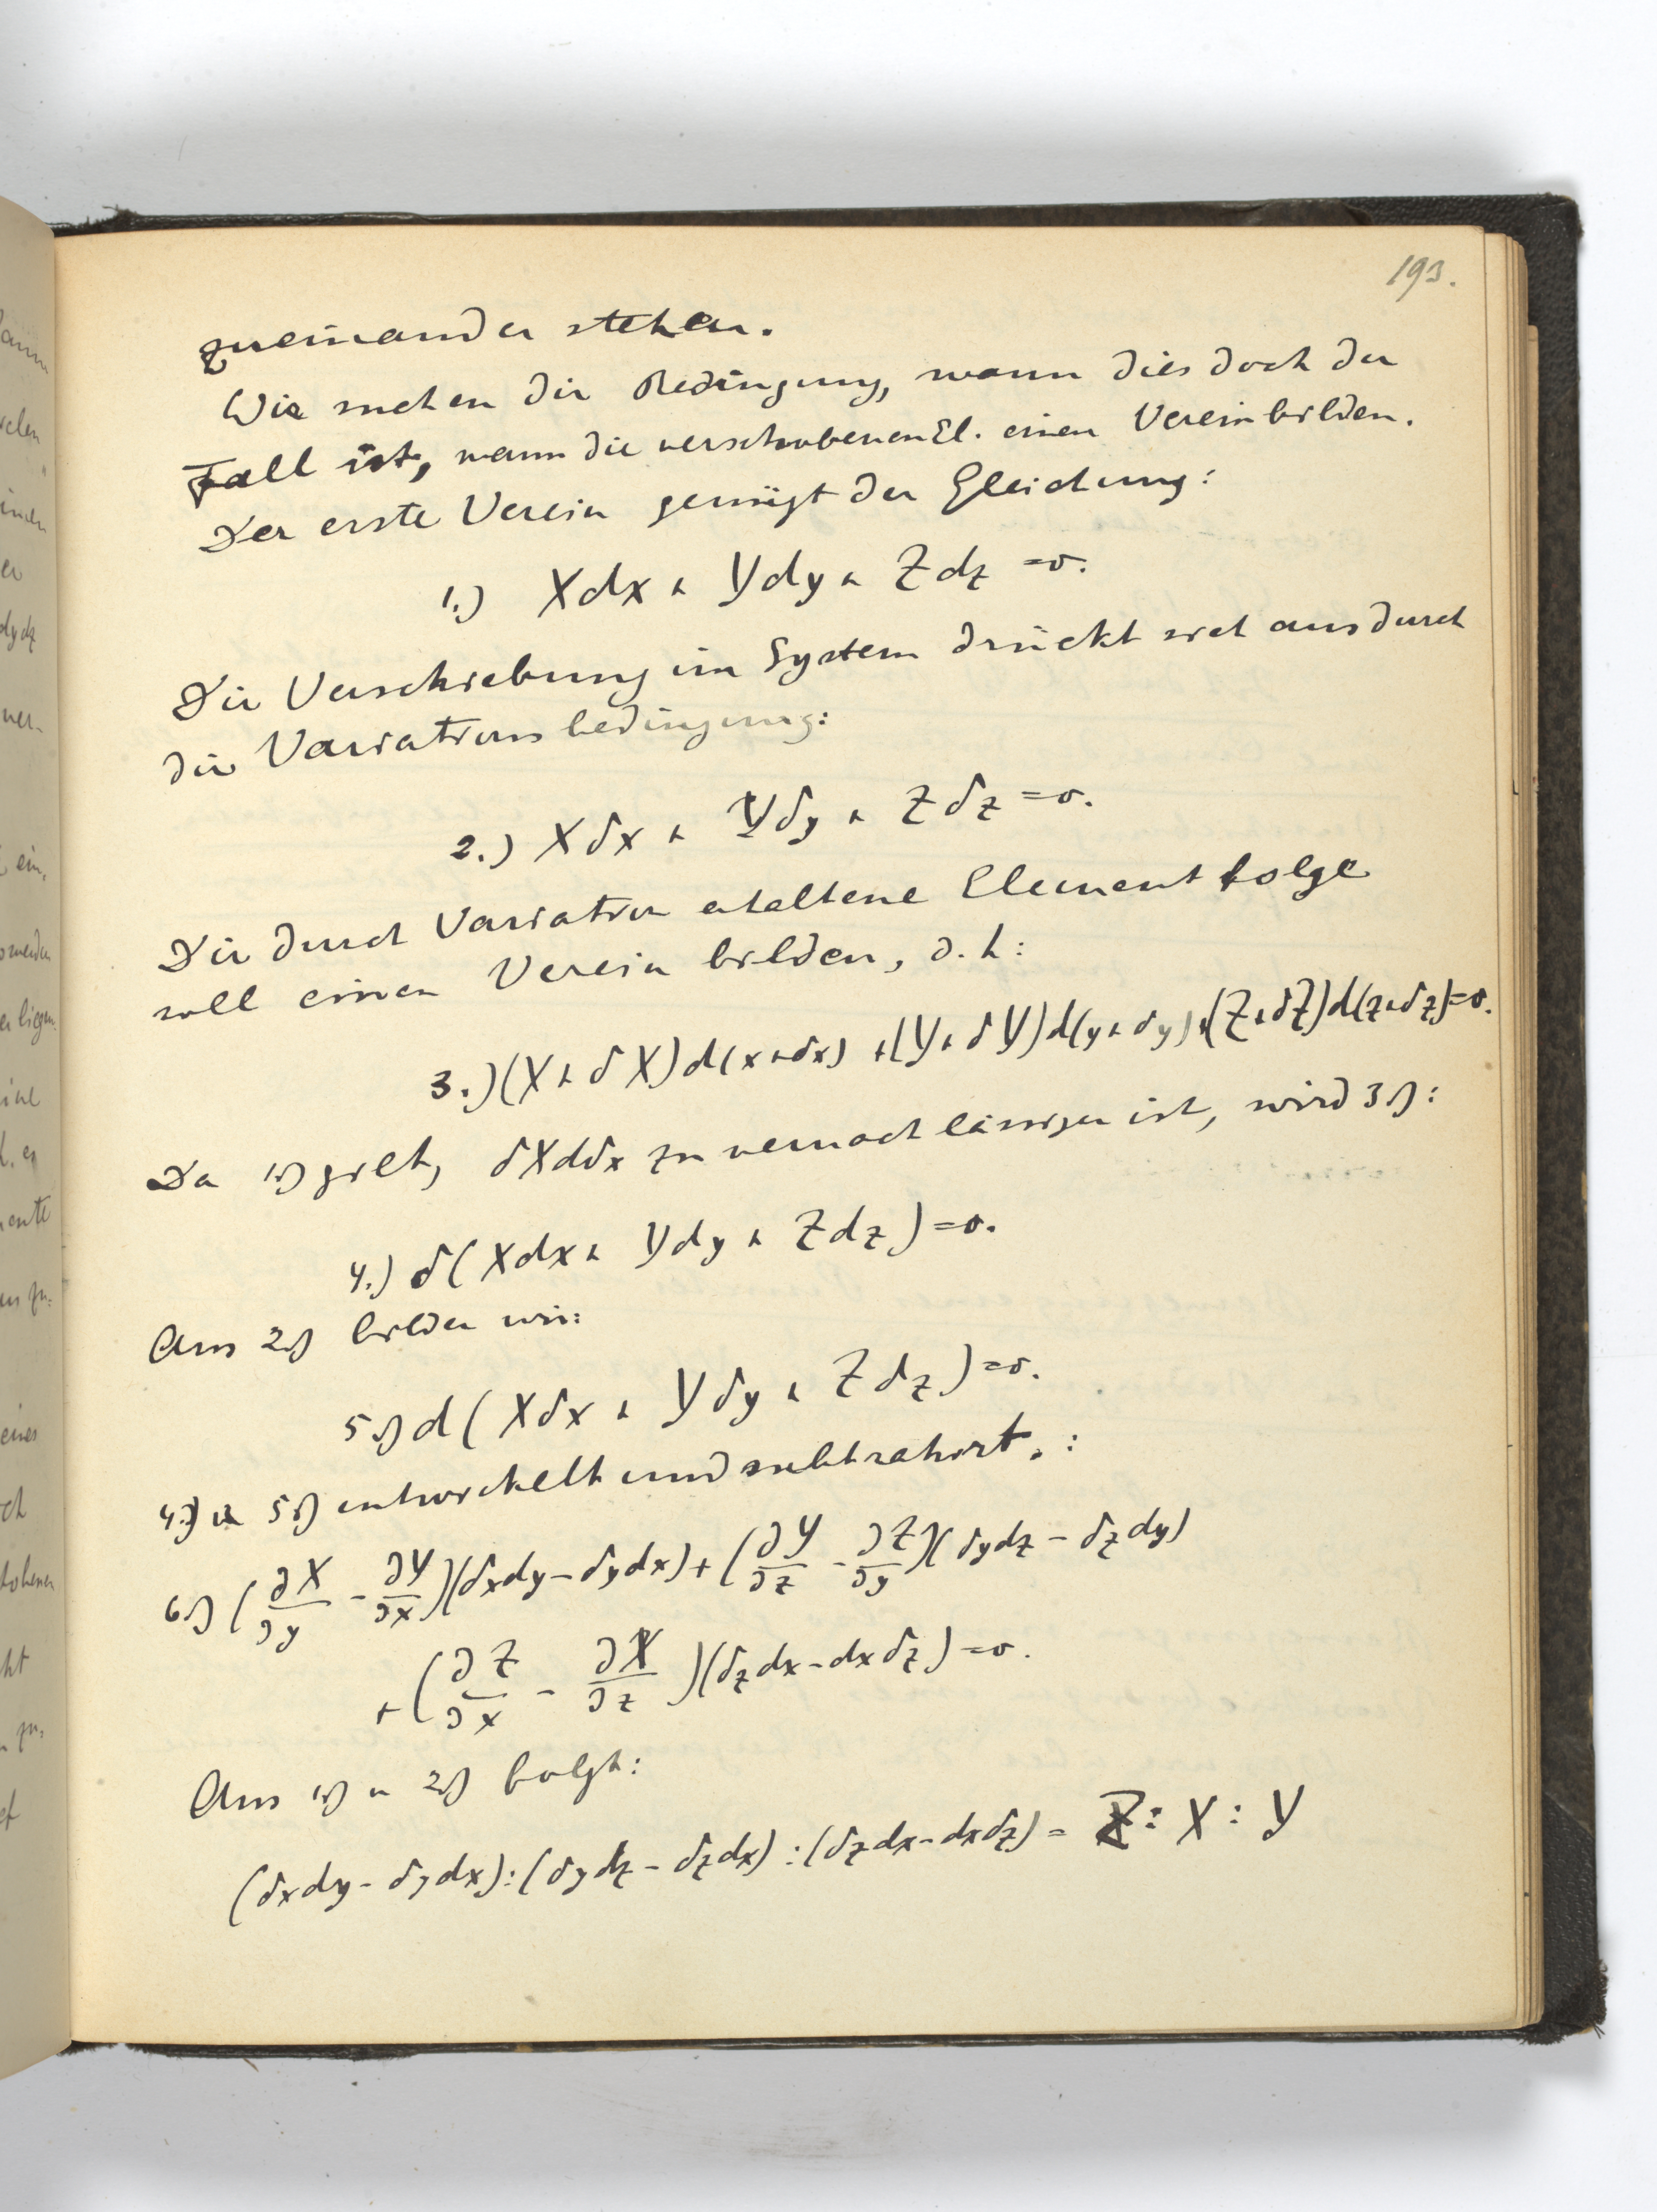 193.
zueinander stehen.
Wir suchen die Bedingung, wann dies doch der
Fall ist, wann die verschobenen El. einen Verein bilden.
Der erste Verein genügt der Gleichung:
1.) Xdx + Ydy + Zdz = 0.
Die Verschiebung im System drückt sich aus durch
die Variationsbedingung:
2.) Xδx + Yδy + Zδz = 0.
Die durch Variation erhaltene Elementfolge
soll einen Verein bilden, d.h:
3.) (X + δX)d(x+δx) + (Y + δY)d(y+δy) + (Z+δZ)d(z+δz) = 0.
Da 1.) gilt, δXdδx zu vernachlässigen ist, wird 3.):
4.) δ(Xdx + Ydy + Zdz) = 0.
Aus 2.) bilden wir:
5.) d(Xδx + Yδy + Zδz) = 0.
4.) u 5.) entwickelt und subtrahirt.:
6.) (∂X/∂y - ∂Y/∂x)(δxdy - δydx) + (∂Y/∂z - ∂Z/∂y)(δydz - δzdy)
+ (∂Z/∂x - ∂X/∂z)(δzdx - dxδz) = 0.
Aus 1.) u 2.) folgt:
(δxdy - δydx) : (δydz - δzdx) : (δzdx - dxδz) = Z : X : Y